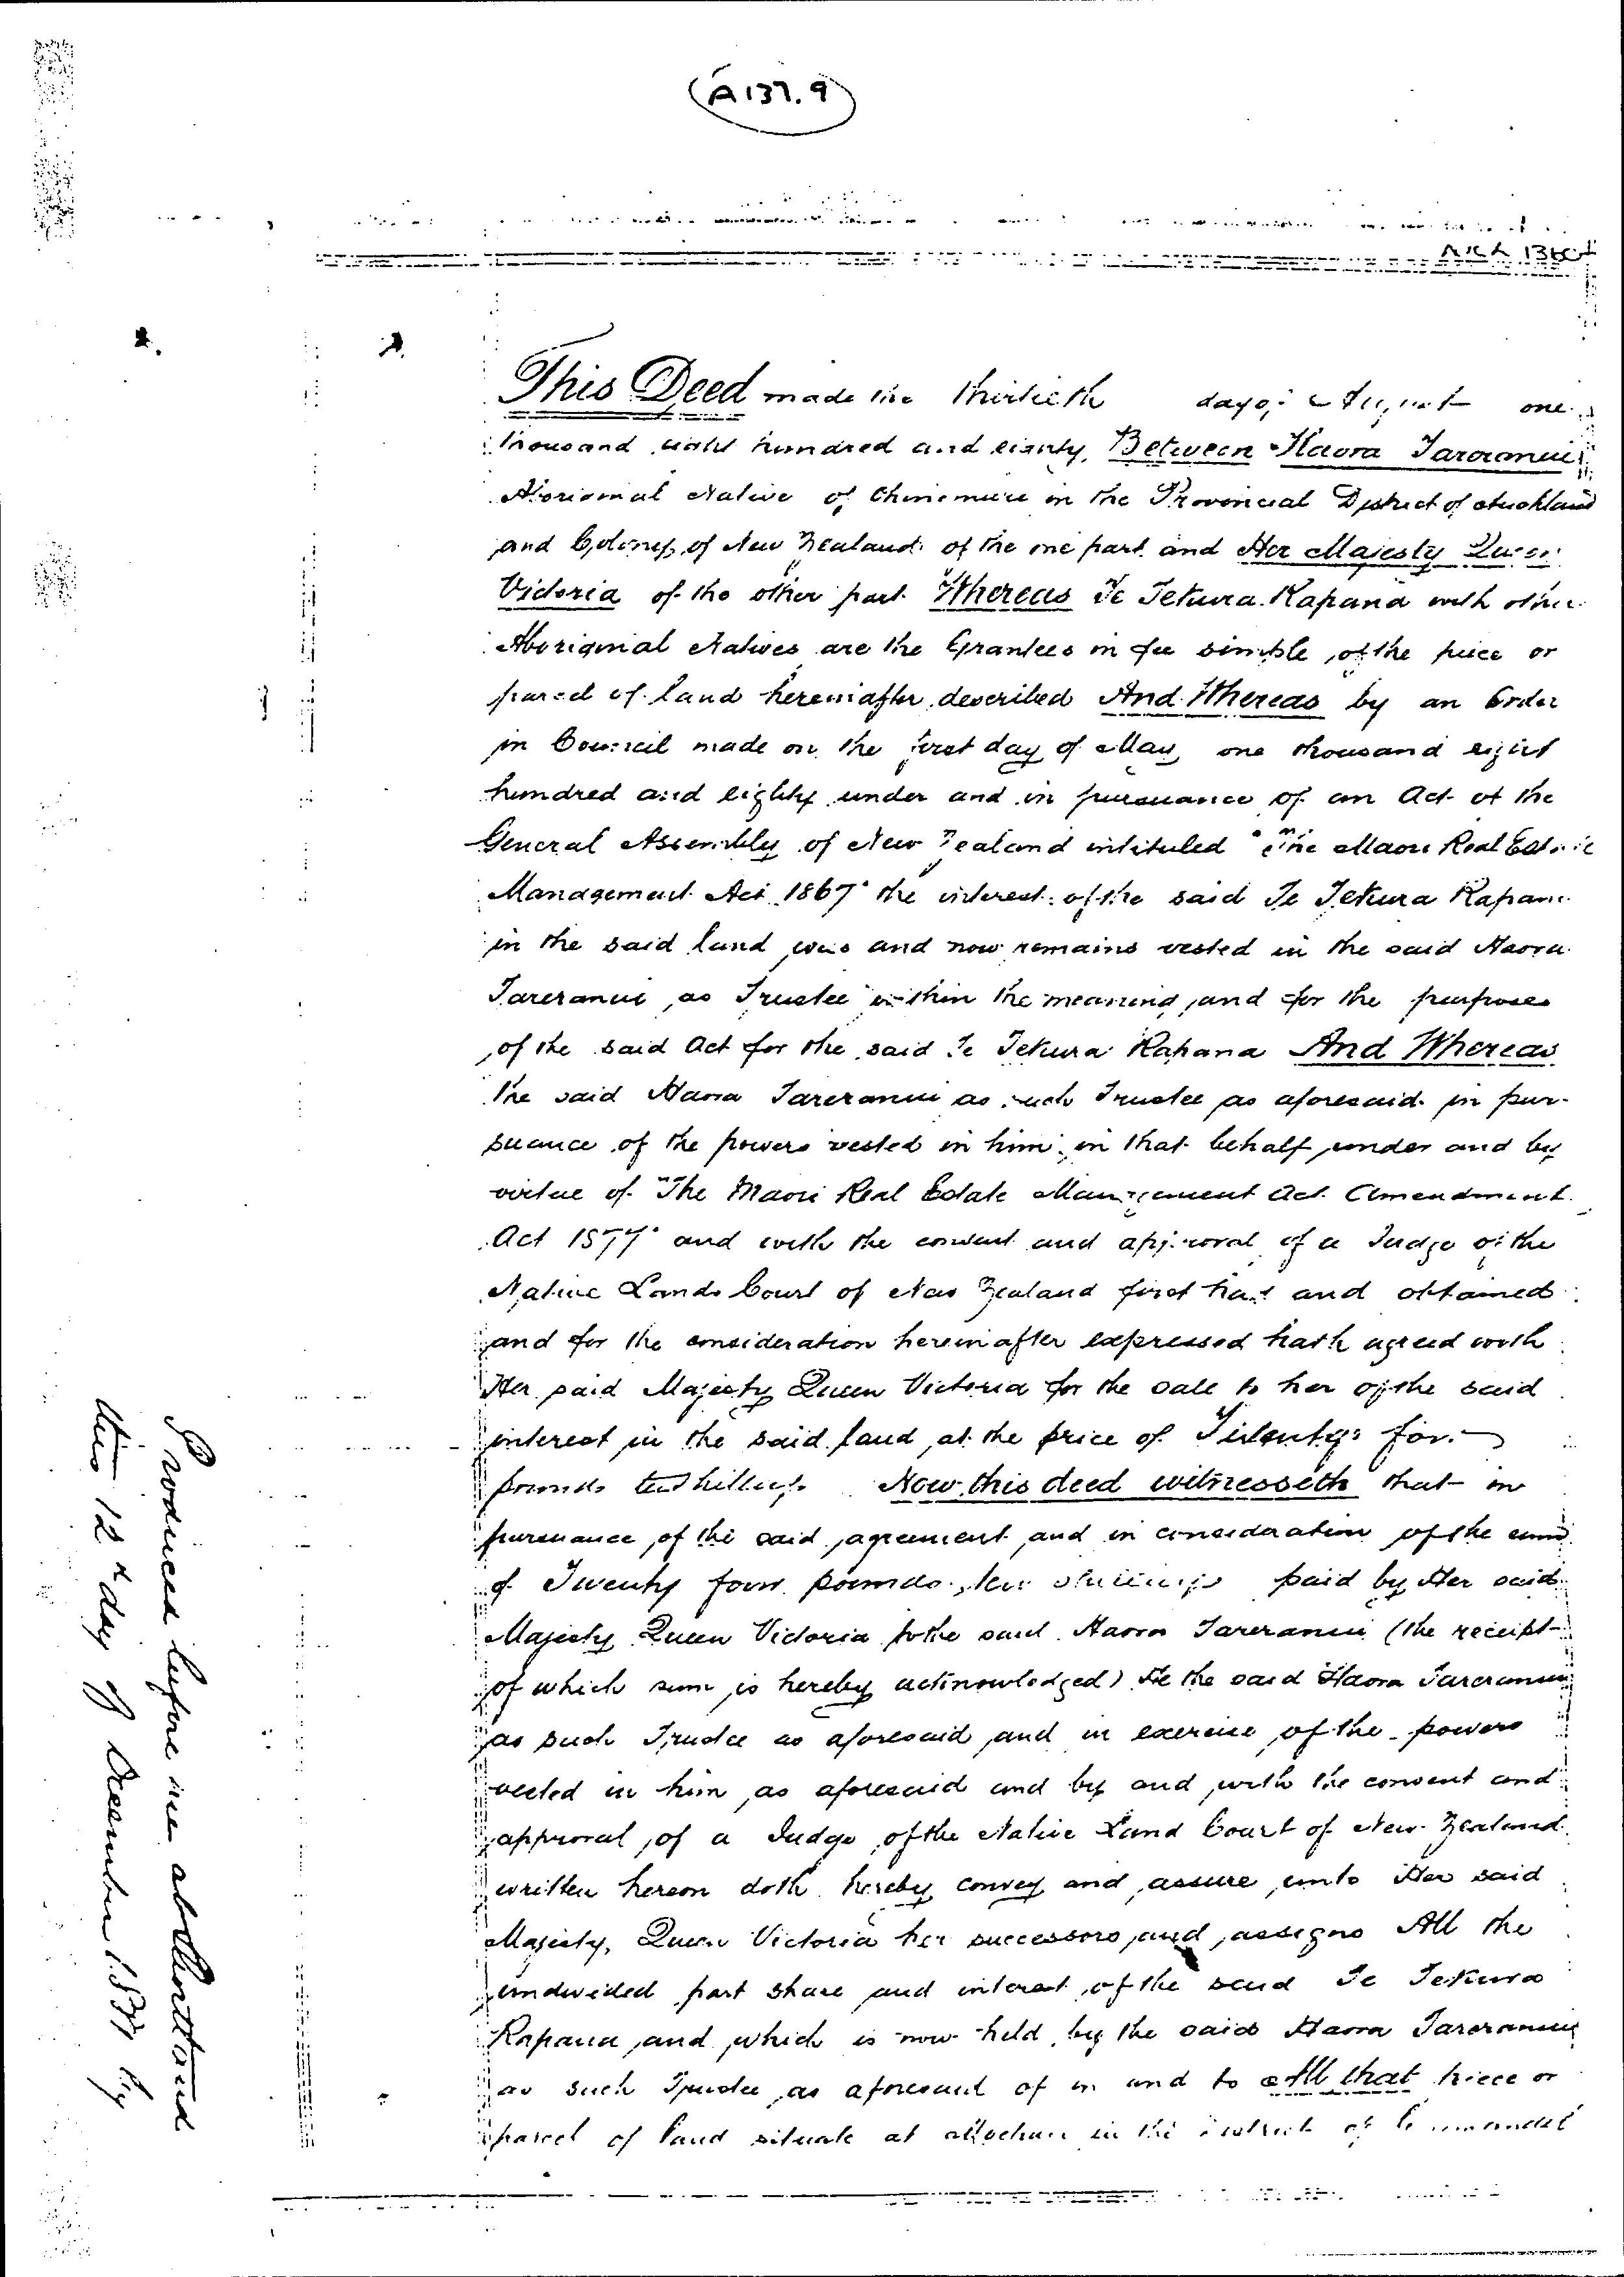 A137.9
This Deed made the thirtieth day of August one
thousand eight hundred and eighty. Between Haora Tareranui
Aboriginal Native of Ohinemuri in the Provincial District of Auckland
and Colony of New Zealand of the one part and Her Majesty Queen
Victoria of the other part Whereas Te Tekura Rapana with other
Aboriginal Natives are the Grantees in fee simple of the piece or
parcel of land hereinafter described And Whereas by an Order
in Council made on the first day of May one thousand eight
hundred and eighty under and in pursuance of an Act of the
General Assembly of New Zealand intituled "The Maori Real Estate
Management Act 1867" the interest of the said Te Tekura Rapana
in the said land was and now remains vested in the said Haora
Tareranui as Trustee within the meaning and for the purposes
of the said Act for the said Te Tekura Rapana And Whereas
the said Haora Tareranui as such Trustee as aforesaid in pur-
suance of the powers vested in him in that behalf under and by
virtue of "The Maori Real Estate Management Act Amendment
Act 1877" and with the consent and approval of a Judge of the
Native Lands Court of New Zealand first had and obtained
and for the consideration hereinafter expressed hath agreed with
Her said Majesty Queen Victoria for the sale to her of the said
interest in the said land at the price of Twenty four
pounds ten shillings Now this deed witnesseth that in
pursuance of the said agreement and in consideration of the sum
of Twenty four pounds ten shillings paid by Her said
Majesty Queen Victoria to the said Haora Tareranui (the receipt
of which sum is hereby acknowledged) He the said Haora Tareranui
as such Trustee as aforesaid and in exercise of the powers
vested in him as aforesaid and by and with the consent and
approval of a Judge of the Native Land Court of New Zealand
written hereon doth hereby convey and assure unto Her said
Majesty, Queen Victoria her successors and assigns All the
undivided part share and interest of the said Te Tekura
Rapana and which is now held by the said Haora Tareranui
as such Trustee as aforesaid of in and to All that piece or
parcel of land situate at in the District of Coromandel
Produced before me at
this 12th day of December by